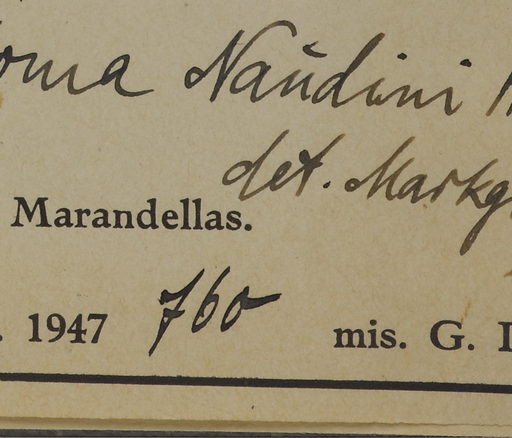 oma Naudini
det. Markg
Marandellas.
. 1947 760 mis. G.